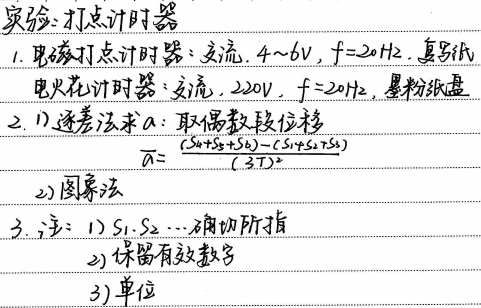 实验：打点计时器
1. 电磁打点计时器：交流. 4~6V, f=20Hz. 复写纸
电火花计时器：交流. 220V, f=20Hz, 墨粉纸盘
2. 1) 逐差法求a：取偶数段位移
a̅ = ((S4+S5+S6)-(S1+S2+S3))/(3T)²
2) 图象法
3. 注：1) S1.S2…确切所指
2) 保留有效数字
3) 单位